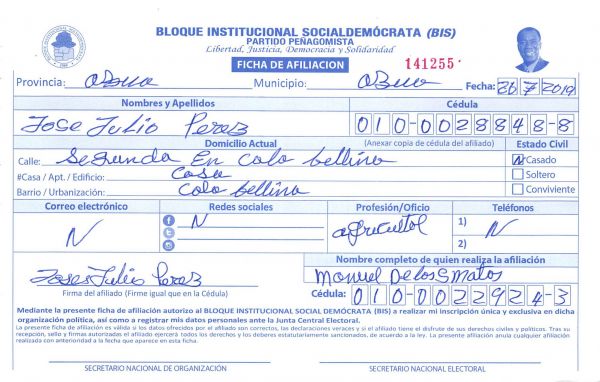 BLOQUE INSTITUCIONAL SOCIALDEMÓCRATA (BIS)
PARTIDO PEÑAGOMISTA
Libertad, Justicia, Democracia y Solidaridad
FICHA DE AFILIACION
141255
Provincia: Azua Municipio: Azua Fecha: 26 7 2019
Nombres y Apellidos Cédula
Jose Julio Perez 010-0028848-8
Domicilio Actual (Anexar copia de cédula del afiliado) Estado Civil
Calle: Segunda En Calo bellina Casado
#Casa / Apt. / Edificio: Casa Soltero
Barrio / Urbanización: Calo bellina Conviviente
Correo electrónico Redes sociales Profesión/Oficio Teléfonos
N N agricultol 1) N
2)
Nombre completo de quien realiza la afiliación
Joses Julio Perez Manuel De los S Matos
Firma del afiliado (Firme igual que en la Cédula) Cédula: 010-0022924-3
Mediante la presente ficha de afiliación autorizo al BLOQUE INSTITUCIONAL SOCIAL DEMÓCRATA (BIS) a realizar mi inscripción única y exclusiva en dicha
organización política, así como a registrar mis datos personales ante la Junta Central Electoral.
La presente ficha es válida si los datos ofrecidos por el afiliado son correctos, las declaraciones veraces y si el afiliado tiene el disfrute de sus derechos civiles y políticos. Tras su
recepción, sello y firmas autorizadas el afiliado ejercerá todos los derechos y los deberes estatutariamente sancionados, de acuerdo a la ley. La presente afiliación anula cualquier afiliación
realizada con anterioridad a la fecha que aparece en esta ficha.
SECRETARIO NACIONAL DE ORGANIZACIÓN SECRETARIO NACIONAL ELECTORAL